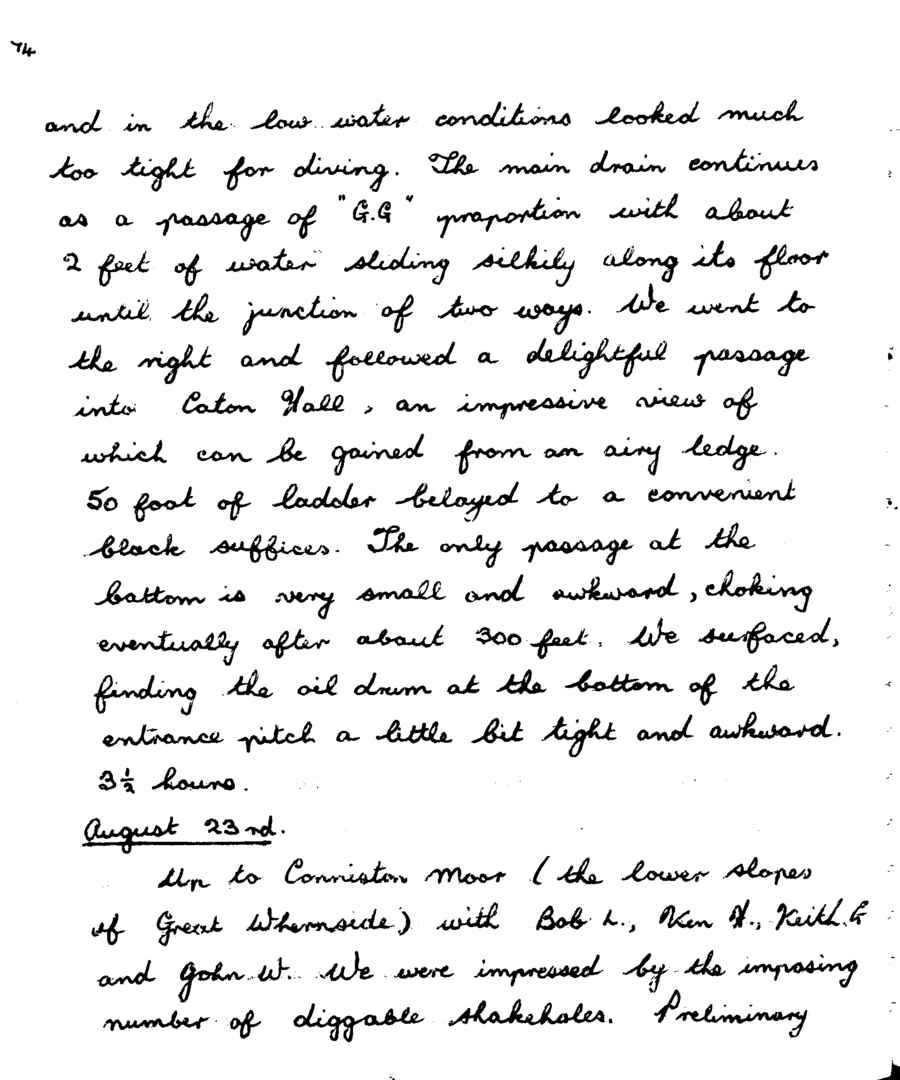 74
and in the low water conditions looked much
too tight for diving. The main drain continues
as a passage of "G.G" praportion with about
2 feet of water sliding silkily along its floor
until the junction of two ways. We went to
the right and followed a delightful passage
into Caton Hall, an impressive view of
which can be gained from an airy ledge.
50 foot of ladder belayed to a convenient
block suffices. The only passage at the
bottom is very small and awkward, choking
eventually after about 300 feet. We surfaced,
finding the oil drum at the bottom of the
entrance pitch a little bit tight and awkward.
3½ hours.
August 23rd.
Up to Conniston Moor (the lower slopes
of Great Whernside) with Bob L., Ken H., Keith.G
and John W. We were impressed by the imposing
number of diggable shakeholes. Preliminary